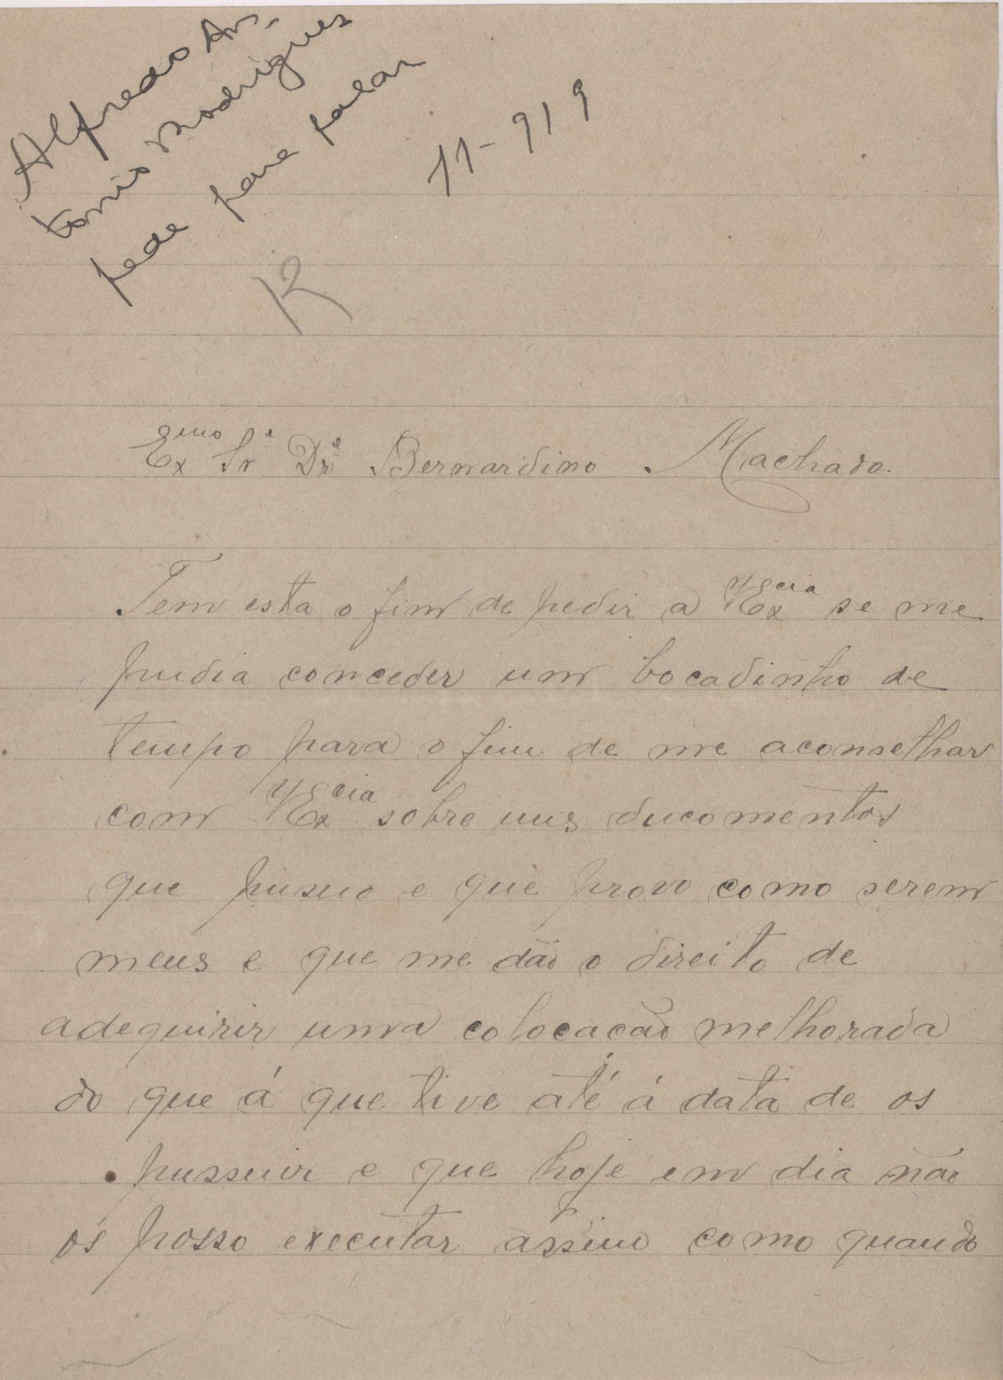 Alfredo An-
tonio Rodrigues
pede para falar
11-919
R
Exmo Sr. Dr. Bernardino Machado.
Tem esta o fim de pedir a V Excia se me
pudia conceder um bocadinho de
tempo para o fim de me aconselhar
com V Excia sobre uns ducomentos
que pusuo e que provo como serem
meus e que me dão o direito de
adequirir uma colocacão melhorada
do que á que tive até á data de os
pussuir e que hoje em dia não
os posso executar assim como quando